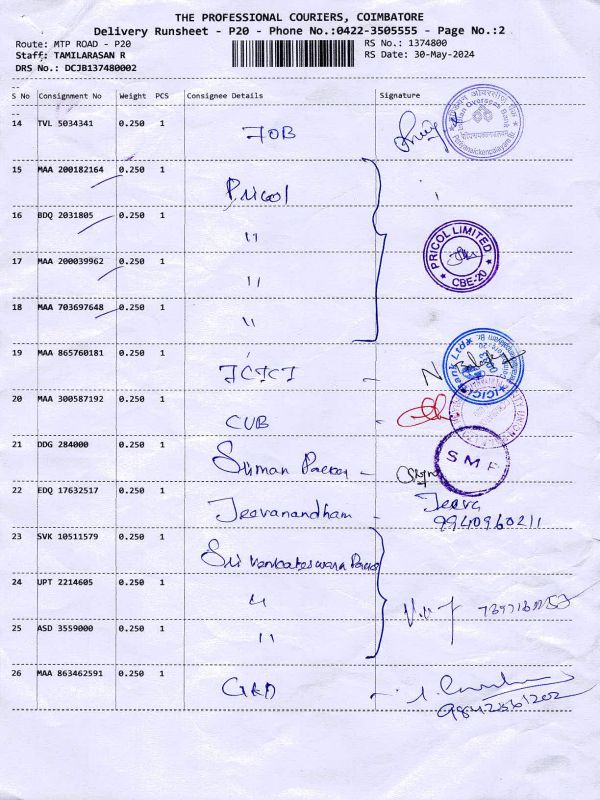 THE PROFESSIONAL COURIERS, COIMBATORE
Delivery Runsheet - P20 - Phone No.:0422-3505555 - Page No.:2
Route: MTP ROAD - P20 RS No.: 1374800
Staff: TAMILARASAN R RS Date: 30-May-2024
DRS No.: DCJB137480002
S No Consignment No Weight PCS Consignee Details Signature
14 TVL 5034341 0.250 1 IOB
Indian Overseas Bank
15 MAA 200182164 0.250 1 Pricol
16 BDQ 2031805 0.250 1 〃
PRICOL LIMITED
17 MAA 200039962 0.250 1 〃
CBE-20
18 MAA 703697648 0.250 1 〃
19 MAA 865760181 0.250 1 ICICI
ICICI Bank Ltd
20 MAA 300587192 0.250 1 CUB
21 DDG 284000 0.250 1 Suman
S M F
22 EDQ 17632517 0.250 1 Jeevanandham Jeeva
9940960211
23 SVK 10511579 0.250 1 Sri Venkateswara
24 UPT 2214605 0.250 1 〃
25 ASD 3559000 0.250 1 〃
26 MAA 863462591 0.250 1 GKD